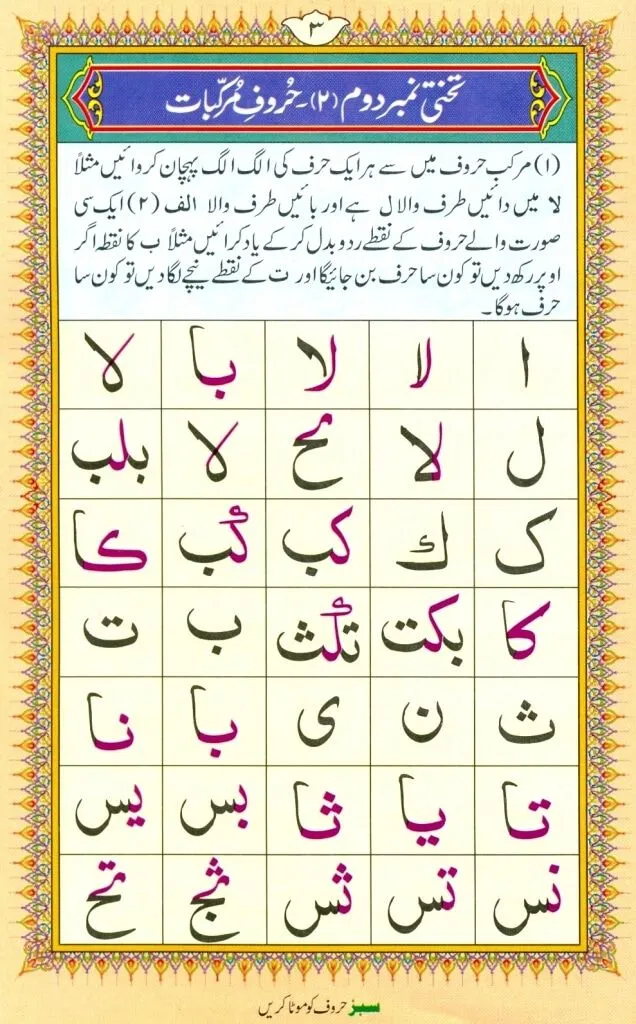 ۳
تختی نمبر دوم (۲)۔ حُروفِ مُرکّبات
(۱) مرکب حروف میں سے ہر ایک حرف کی الگ الگ پہچان کروائیں مثلاً
لا میں دائیں طرف والا ل ہے اور بائیں طرف والا الف (۲) ایک سی
صورت والے حروف کے نقطے ردو بدل کر کے یاد کرائیں مثلاً ب کا نقطہ اگر
اوپر رکھ دیں تو کون سا حرف بن جائیگا اور ت کے نقطے نیچے لگا دیں تو کون سا
حرف ہوگا۔
ا لا لا با لا
ل لا نح لا بلب
ک ك کب كب كا
کا بکت تكث ب ت
ث ن ی با نا
تا یا ثا بس یس
نس تس ثس ثج تح
سبز حروف کو موٹا کریں